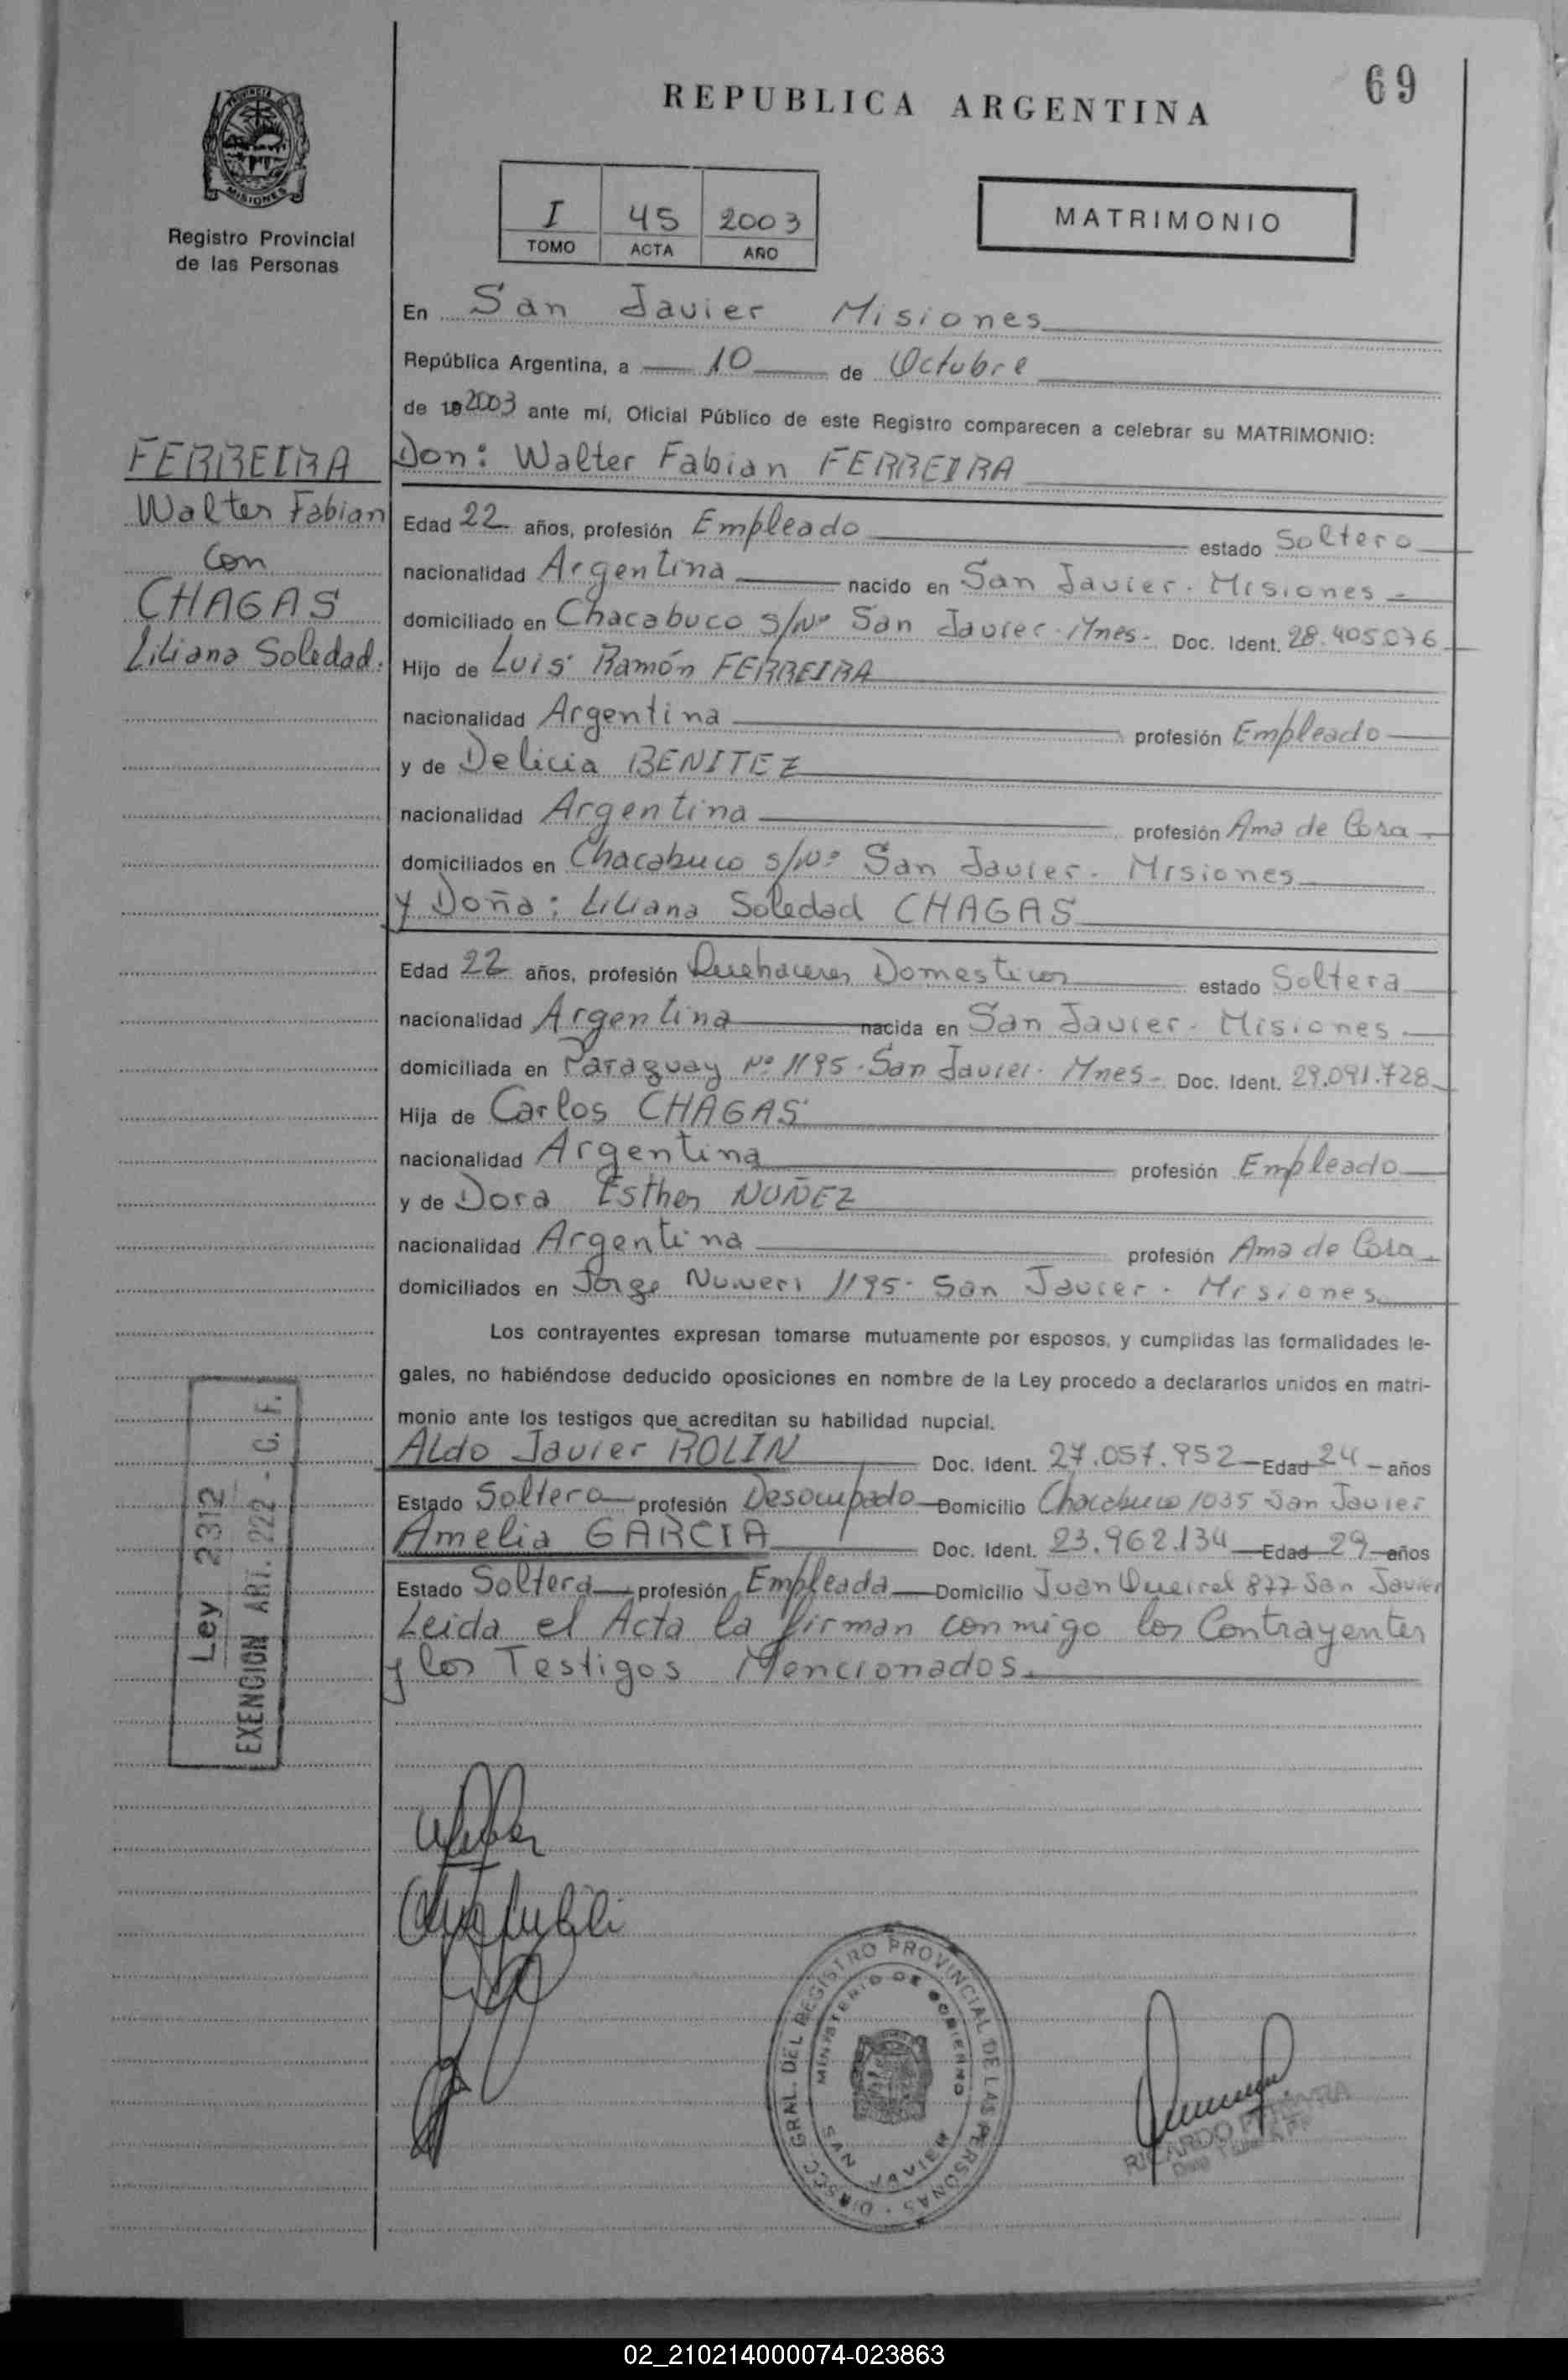 69
REPUBLICA ARGENTINA
PROVINCIA DE
MISIONES
Registro Provincial
de las Personas
I 45 2003
TOMO ACTA AÑO
MATRIMONIO
En San Javier Misiones
República Argentina, a 10 de Octubre
de 192003 ante mí, Oficial Público de este Registro comparecen a celebrar su MATRIMONIO:
FERREIRA
Walter Fabian
Con
CHAGAS
Liliana Soledad.
Don: Walter Fabian FERREIRA
Edad 22 años, profesión Empleado estado Soltero
nacionalidad Argentina nacido en San Javier. Misiones
domiciliado en Chacabuco S/Nº San Javier. Mnes- Doc. Ident. 28.405.076
Hijo de Luis Ramón FERREIRA
nacionalidad Argentina profesión Empleado
y de Delicia BENITEZ
nacionalidad Argentina profesión Ama de Casa
domiciliados en Chacabuco S/Nº San Javier. Misiones
y Doña: Liliana Soledad CHAGAS
Edad 22 años, profesión Quehaceres Domesticos estado Soltera
nacionalidad Argentina nacida en San Javier. Misiones
domiciliada en Paraguay Nº 1195. San Javier. Mnes- Doc. Ident. 29.091.728
Hija de Carlos CHAGAS
nacionalidad Argentina profesión Empleado
y de Dora Esther NUÑEZ
nacionalidad Argentina profesión Ama de Casa
domiciliados en Jorge 1195- San Javier. Misiones
Los contrayentes expresan tomarse mutuamente por esposos, y cumplidas las formalidades le-
gales, no habiéndose deducido oposiciones en nombre de la Ley procedo a declararlos unidos en matri-
monio ante los testigos que acreditan su habilidad nupcial.
Aldo Javier ROLIN Doc. Ident. 27.057.952 Edad 24 años
Estado Soltero profesión Desocupado Domicilio Chacabuco 1035 San Javier
Amelia GARCIA Doc. Ident. 23.962.134 Edad 29 años
Estado Soltera profesión Empleada Domicilio Juan Queirel 877 San Javier
Leida el Acta la firman conmigo los Contrayentes
y los Testigos Mencionados.
Ley 2312
EXENCION ART. 222 - C. F.
DIRECC. GRAL. DEL REGISTRO PROVINCIAL DE LAS PERSONAS
MINISTERIO DE GOBIERNO
SAN JAVIER
RICARDO
02_210214000074-023863